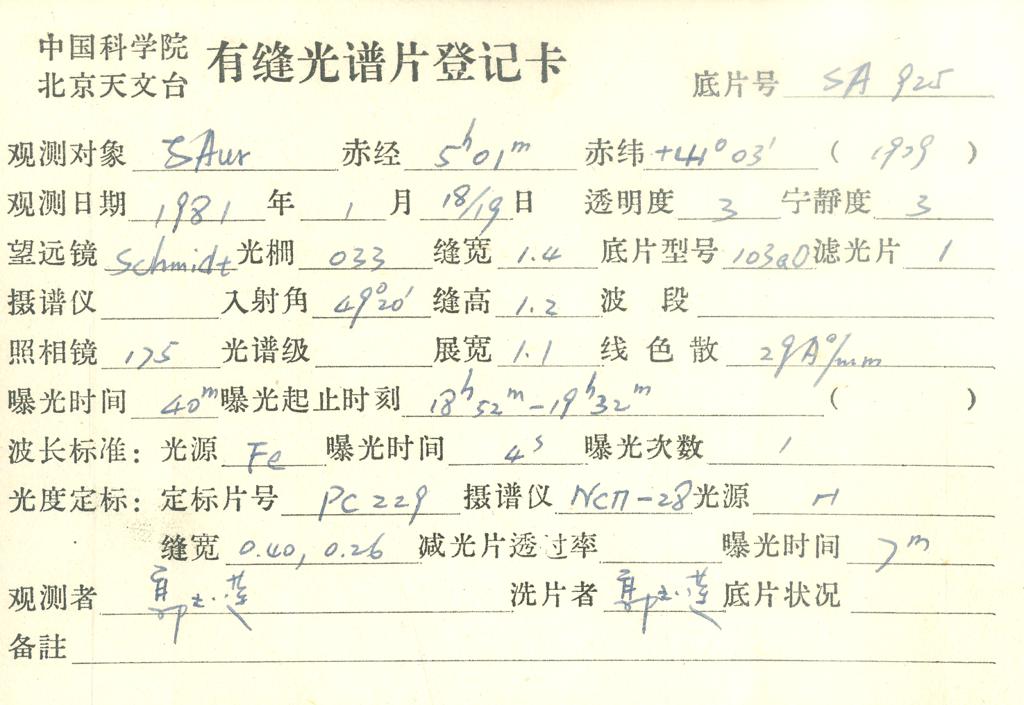 中国科学院
北京天文台
有缝光谱片登记卡
底片号 SA 925
观测对象 ζAur 赤经 5h01m 赤纬 +41°03′ ( 1979 )
观测日期 1981 年 1 月 18/19 日 透明度 3 宁静度 3
望远镜 Schmidt 光栅 033 缝宽 1.4 底片型号 103aO 滤光片 1
摄谱仪 入射角 49°20′ 缝高 1.2 波段
照相镜 175 光谱级 展宽 1.1 线色散 29A°/mm
曝光时间 40m 曝光起止时刻 18h52m-19h32m ( )
波长标准: 光源 Fe 曝光时间 4s 曝光次数 1
光度定标: 定标片号 PC229 摄谱仪 ИСП-28 光源 H
缝宽 0.40, 0.26 减光片透过率 曝光时间 7m
观测者 洗片者 底片状况
备註